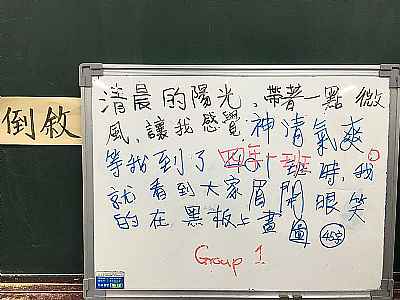 倒敘
清晨的陽光，帶著一點微
風，讓我感覺神清氣爽
等我到了四年一班時，我
就看到大家眉開眼笑
的在黑板上畫圖 45字
Group 1